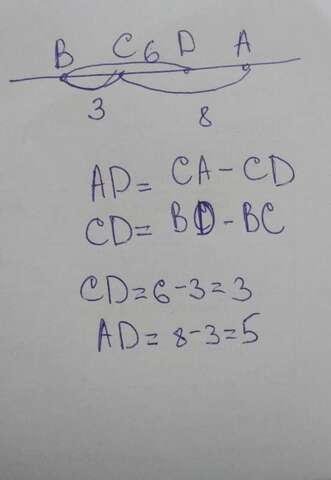 B C 6 D A
3 8
AD = CA - CD
CD = BD - BC
CD = 6 - 3 = 3
AD = 8 - 3 = 5